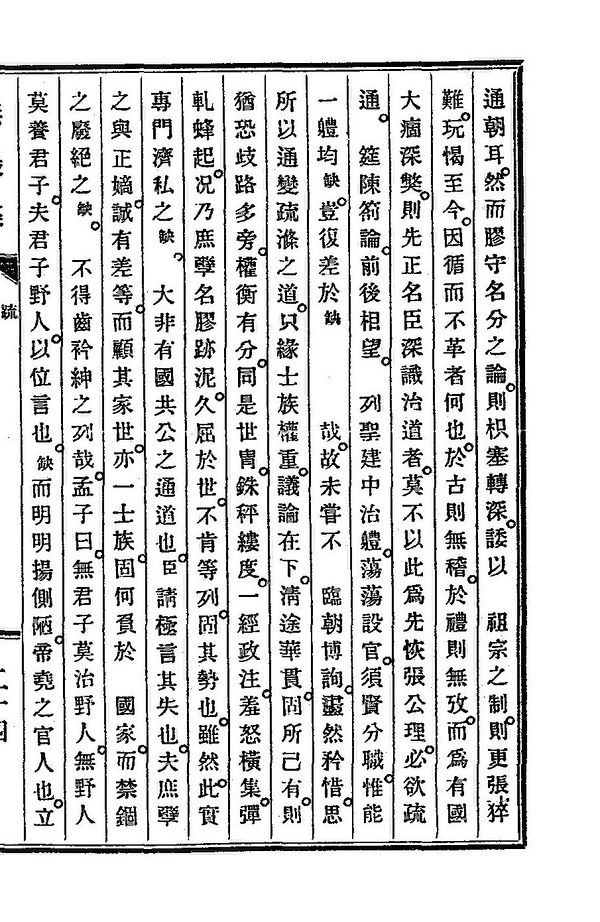 通朝耳然而膠守名分之論則枳塞轉深諉以 祖宗之制則更張猝
難玩愒至今因循而不革者何也於古則無稽於禮則無攷而爲有國
大痼深獘則先正名臣深識治道者莫不以此爲先恢張公理必欲疏
通 筵陳箚論前後相望 列聖建中治軆蕩蕩設官須賢分職惟能
一軆均缺豈復差於缺 哉故未嘗不 臨朝博詢衋然矜惜思
所以通變疏滌之道只緣士族權重議論在下淸途華貫固所己有則
猶恐歧路多旁權衡有分同是世胄銖秤縷度一經政注羞怒橫集彈
軋蜂起况乃庶孼名膠跡泥久屈於世不肯等列固其勢也雖然此實
專門濟私之缺 大非有國共公之通道也臣請極言其失也夫庶孼
之與正嫡誠有差等而顧其家世亦一士族固何負於 國家而禁錮
之廢絕之缺 不得齒衿紳之列哉孟子曰無君子莫治野人無野人
莫養君子夫君子野人以位言也缺而明明揚側陋帝堯之官人也立
疏
二十四